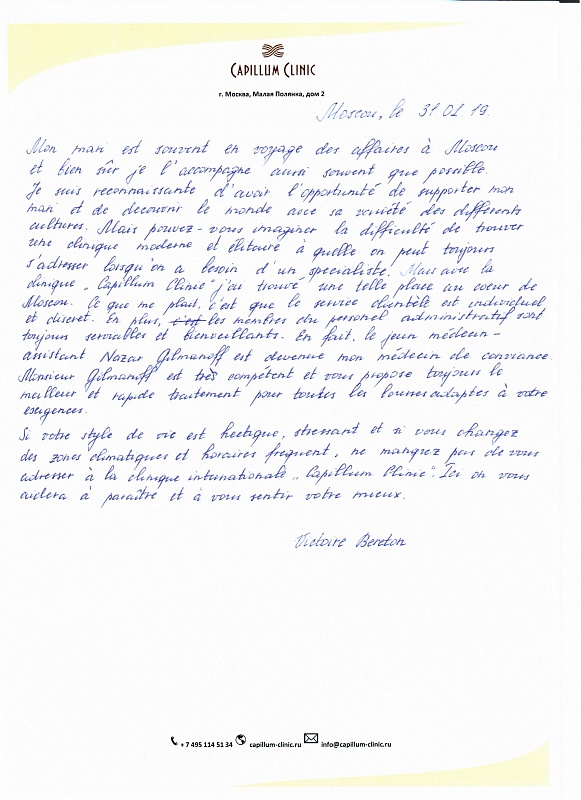 CAPILLUM CLINIC
г. Москва, Малая Полянка, дом 2
Moscou, le 31.01.19.
Mon mari est souvent en voyage des affaires à Moscou
et bien sûr je l'accompagne aussi souvent que possible.
Je suis reconnaissante d'avoir l'opportunité de supporter mon
mari et de decouvrir le monde avec sa variété des differents
cultures. Mais pouvez-vous imaginer la difficulté de trouver
une clinique moderne et élitaire à quelle on peut toujours
s'adresser lorsqu'on a besoin d'un specialiste. Mais avec la
clinique „Capillum Clinic" j'ai trouvé une telle place au coeur de
Moscou. Ce que me plait, c'est que le service clientèlé est individuel
et discret. En plus, c'est les membres du personel administratif sont
toujours serviables et bienveillants. En fait, le jeun médecin-
assistant Nazar Gilmanoff est devenue mon médecin de conviance.
Monsieur Gilmanoff est très compétent et vous propose toujours le
meilleur et rapide traitement pour toutes les adaptes à votre
exigences.
Si votre style de vie est hectique, stressant et si vous changez
des zones climatiques et horaires frequent, ne manquez pas de vous
adresser à la clinique internationale „Capillum Clinic". Ici on vous
aidera à paraître et à vous sentir votre mieux.
Victoire Bereton
+ 7 495 114 51 34 capillum-clinic.ru info@capillum-clinic.ru